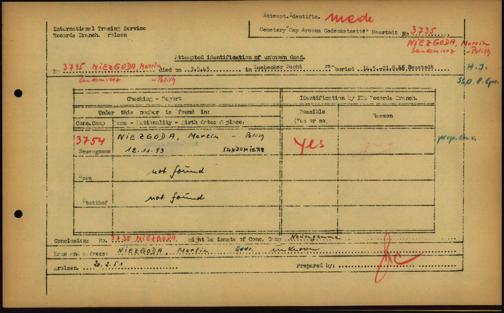 Attempt. Identific. made
International Tracing Service
Records Branch. Arolsen
Cemetery "Cap Arcona Gedenkstaette" Neustadt No. 3735
NIEZGODA, Marcin
Sandomierz - Polish
Attempted identification of unknown dead.
No. 3735 NIEZGODA, Marcin died on 3.5.45 in Luebecker Bucht buried Neustadt
Sandomierz - Polish
H.J.
Checking - Report
Identification by ITS Records Branch.
Under this number is found in:
Possible
Yes or no
Reason
Conc.Camp Name - Nationality - Birth dates & place.
3754 NIEZGODA, Marcin - Polish
Neuengamme 12.11.93 SANDOMIERZ
Yes
not found
Stutthof not found
Conclusion: No. 3735 NIEZGODA, might be inmate of Conc. Camp Neuengamme
Name and adress: NIEZGODA, Marcin unknown
Arolsen, Prepared by: